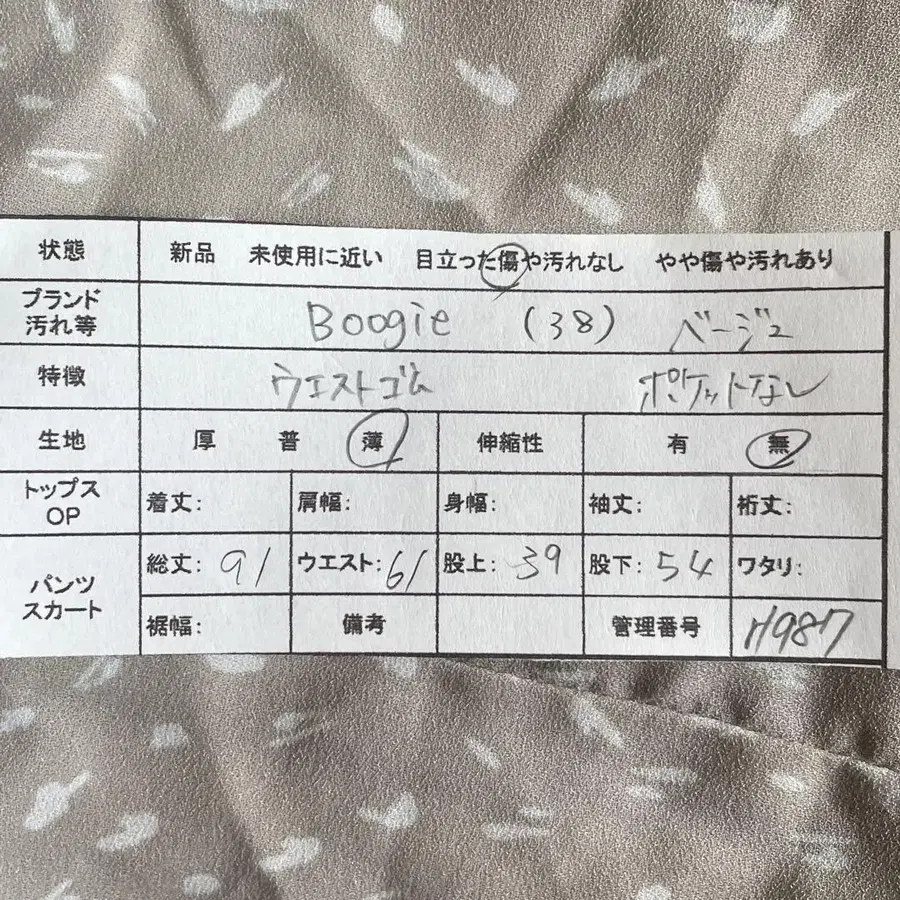 状態 新品 未使用に近い 目立った傷や汚れなし やや傷や汚れあり
ブランド
汚れ等 Boogie (38) ベージュ
特徴 ウエストゴム ポケットなし
生地 厚 普 薄 伸縮性 有 無
トップス
OP 着丈: 肩幅: 身幅: 袖丈: 裄丈:
パンツ
スカート 総丈: 91 ウエスト: 61 股上: 39 股下: 54 ワタリ:
裾幅: 備考 管理番号 H987